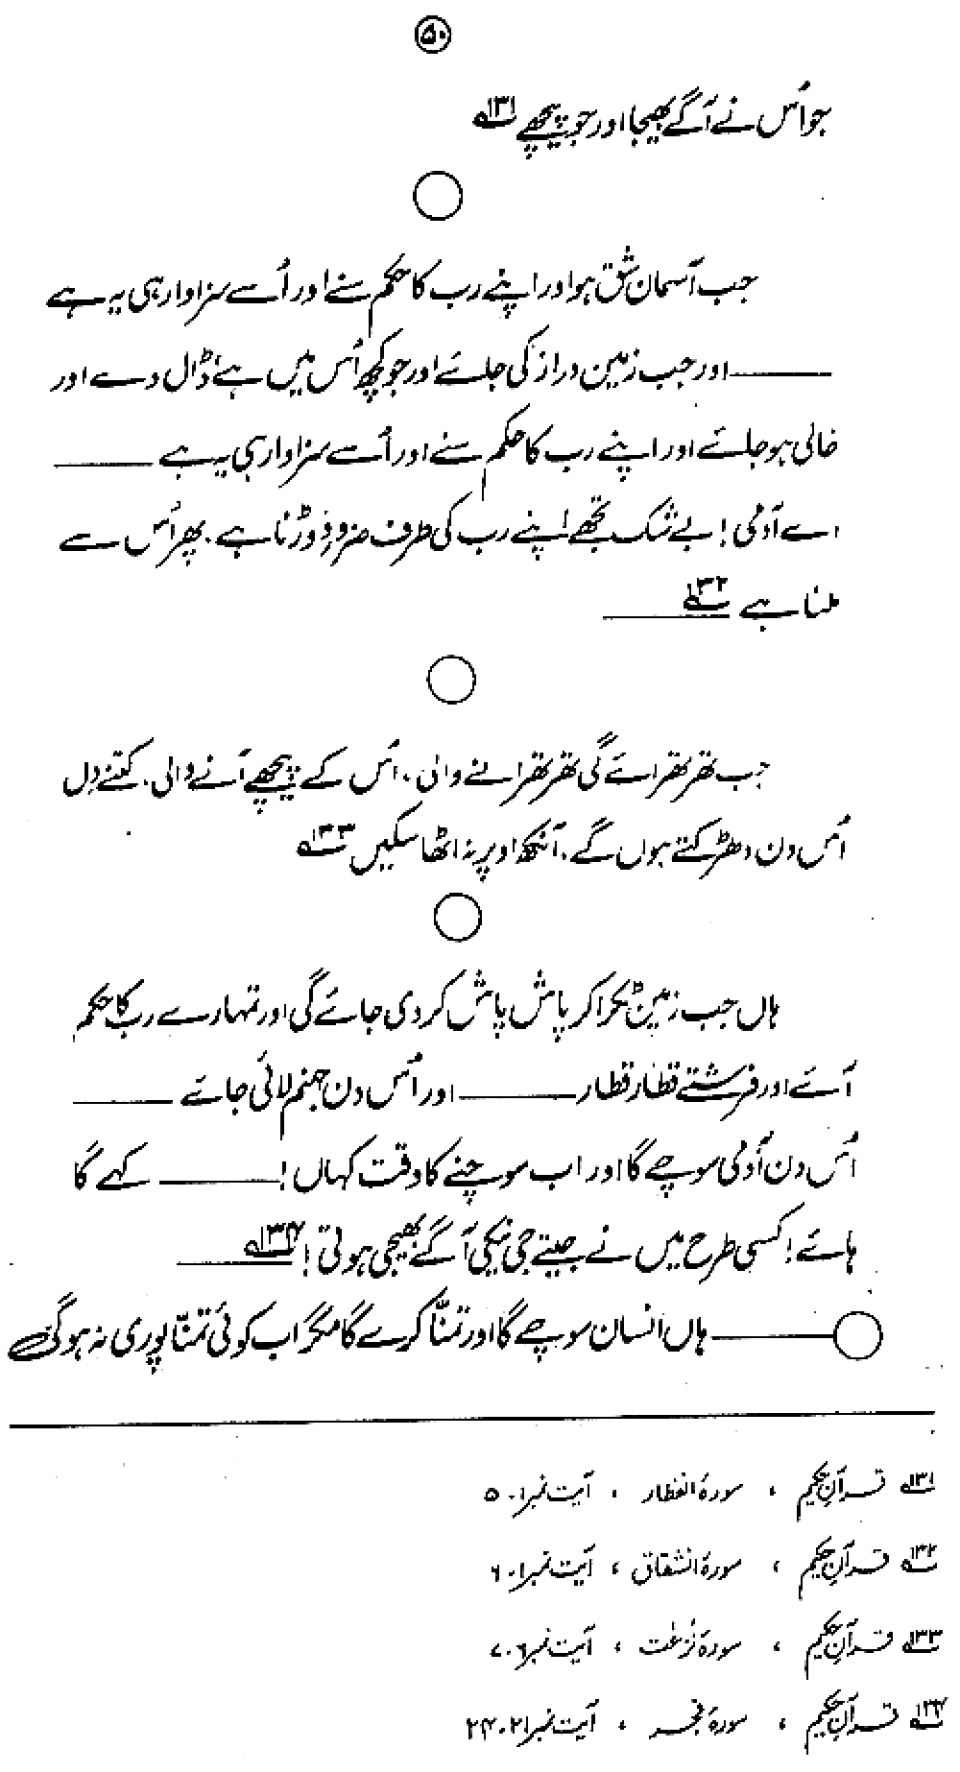 ۵۰
جو اُس نے آگے بھیجا اور جو پیچھے ۱۳۱؎
جب آسمان شق ہو اور اپنے رب کا حکم سنے اور اُسے سزاوار ہی یہ ہے
——— اور جب زمین دراز کی جائے اور جو کچھ اُس میں ہے ڈال دے اور
خالی ہو جائے اور اپنے رب کا حکم سنے اور اُسے سزاوار ہی یہ ہے ———
اے آدمی! بے شک تجھے اپنے رب کی طرف ضرور دوڑنا ہے، پھر اُس سے
ملنا ہے ۱۳۲؎ ———
جب تھرتھرائے گی تھرتھرانے والی، اُس کے پیچھے آنے والی، کتنے دل
اُس دن دھڑکتے ہوں گے، آنکھ اوپر نہ اٹھا سکیں ۱۳۳؎
ہاں جب زمین ٹکرا کر پاش پاش کر دی جائے گی اور تمہارے رب کا حکم
آئے اور فرشتے قطار قطار ——— اور اُس دن جہنم لائی جائے ———
اُس دن آدمی سوچے گا اور اب سوچنے کا وقت کہاں! ——— کہے گا
ہائے! کسی طرح میں نے جیتے جی نیکی آگے بھیجی ہوتی! ۱۳۴؎ ———
——— ہاں انسان سوچے گا اور تمنّا کرے گا مگر اب کوئی تمنّا پوری نہ ہوگی
۱۳۱؎ قرآن حکیم ، سورۂ انفطار ، آیت نمبر ۱۔۵
۱۳۲؎ قرآن حکیم ، سورۂ انشقاق ، آیت نمبر ۱۔۶
۱۳۳؎ قرآن حکیم ، سورۂ نزعٰت ، آیت نمبر ۶۔۷
۱۳۴؎ قرآن حکیم ، سورۂ فجر ، آیت نمبر ۲۱۔۲۴